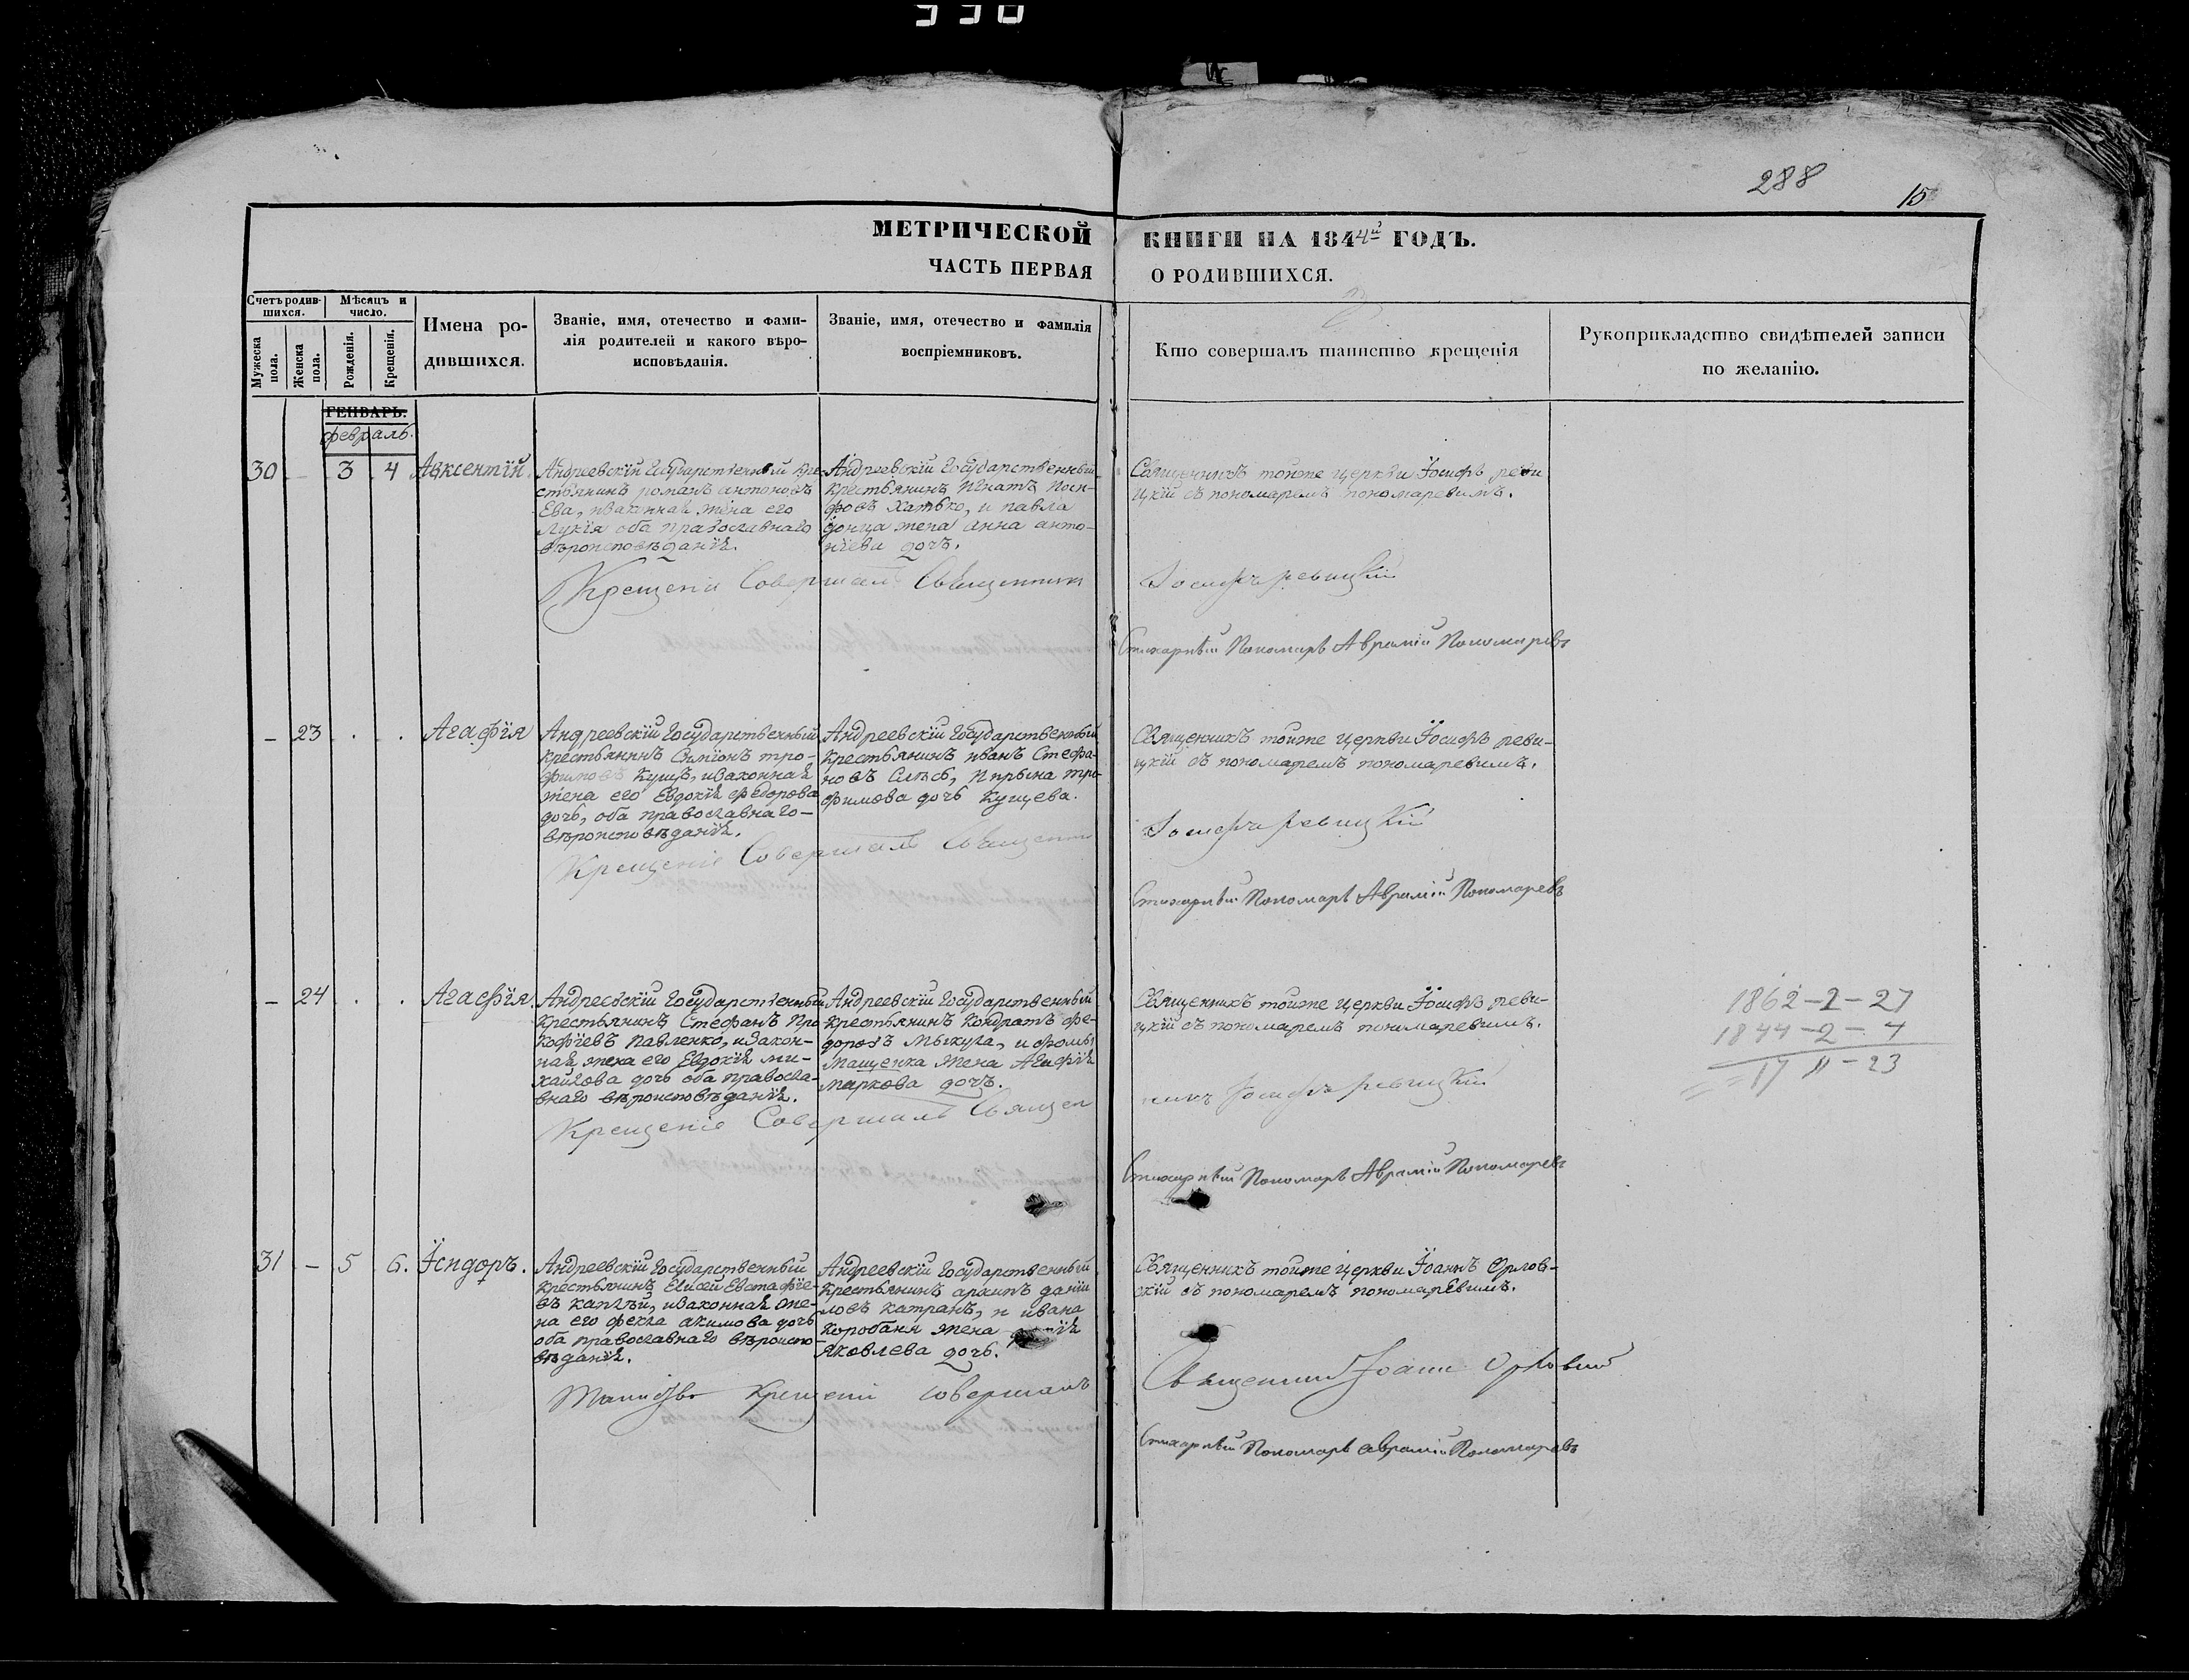 288 15
МЕТРИЧЕСКОЙ КНИГИ НА 1844й ГОДЪ.
ЧАСТЬ ПЕРВАЯ О РОДИВШИХСЯ.
Счетъ родив-
шихся.
Мужеска
пола.
Женска
пола.
Мѣсяцъ и
число.
Рожденія.
Крещенія.
Имена ро-
дившихся.
Званіе, имя, отечество и фами-
лія родителей и какого вѣро-
исповѣданія.
Званіе, имя, отечество и фамилія
воспріемниковъ.
Кто совершалъ таинство крещенія
Рукоприкладство свидѣтелей записи
по желанію.
ГЕНВАРЬ.
февраль.
30 – 3 4 Авксентій.
Андреевскій Государственный кре-
стьянинъ романъ антоновъ
Ева, изаконная жена его
Лукія оба православнаго
вѣроисповѣданія.
Андреевскій Государственный
крестьянинъ Игнатъ
Хатько, и павла
донца жена анна анто-
нїева дочъ.
Священникъ тойже церкви Іосифъ реви
цкій съ пономаремъ пономаревимъ.
Крещеніе Совершалъ Священникъ Іосифъ ревицкій
Стихарный Пономарь Аврамій Пономаревъ
– 23 . . Агафїя
Андреевскій Государственный
крестьянинъ Симїонъ тро-
фимовъ Кущъ, изаконная
жена его Евдокія федорова
дочь, оба православнаго
вѣроисповѣданія.
Андреевскій Государственный
крестьянинъ иванъ Стефа-
новъ Слѣсь, Ирына тро
фимова дочь Кущева.
Священникъ тойже церкви Іосифъ реви-
цкій съ пономаремъ пономаревимъ.
Крещеніе Совершалъ Священникъ Іосифъ ревицкій
Стихарный Пономарь Аврамій Пономаревъ
– 24 . . Агафїя.
Андреевскій Государственный
крестьянинъ Стефанъ Про
кофїевъ Павленко, изакон-
ная жена его Евдокія ми-
хайлова дочь оба правосла-
внаго вѣроисповѣданія.
Андреевскій Государственный
крестьянинъ Кондратъ фе-
доровъ Мыкула, и фомы
Мащенка жена Агафїя
Маркова дочъ.
Священникъ тойже церкви Іосифъ реви-
цкій съ пономаремъ пономаревимъ.
Крещеніе Совершалъ Священ
никъ Іосифъ ревицкій
Стихарный Пономарь Аврамій Пономаревъ
1862–2–27
1844–2–4
17 11–23
31 – 5 6. Їсидоръ.
Андреевскій Государственный
крестьянинъ Елисей Евстафїе-
въ каплѣй, изаконная же-
на его фекла акимова дочь
оба православнаго вѣроиспо
вѣданія.
Андреевскій Государственный
крестьянинъ архипъ данїи
ловъ катранъ, и ивана
коробаня жена
Яковлева дочь.
Священникъ тойже церкви Їоаннъ Орлов-
скій съ пономаремъ пономаревимъ.
Таинство Крещенія Совершалъ Священникъ Іоаннъ Орловскій
Стихарный Пономарь аврамій Пономаревъ